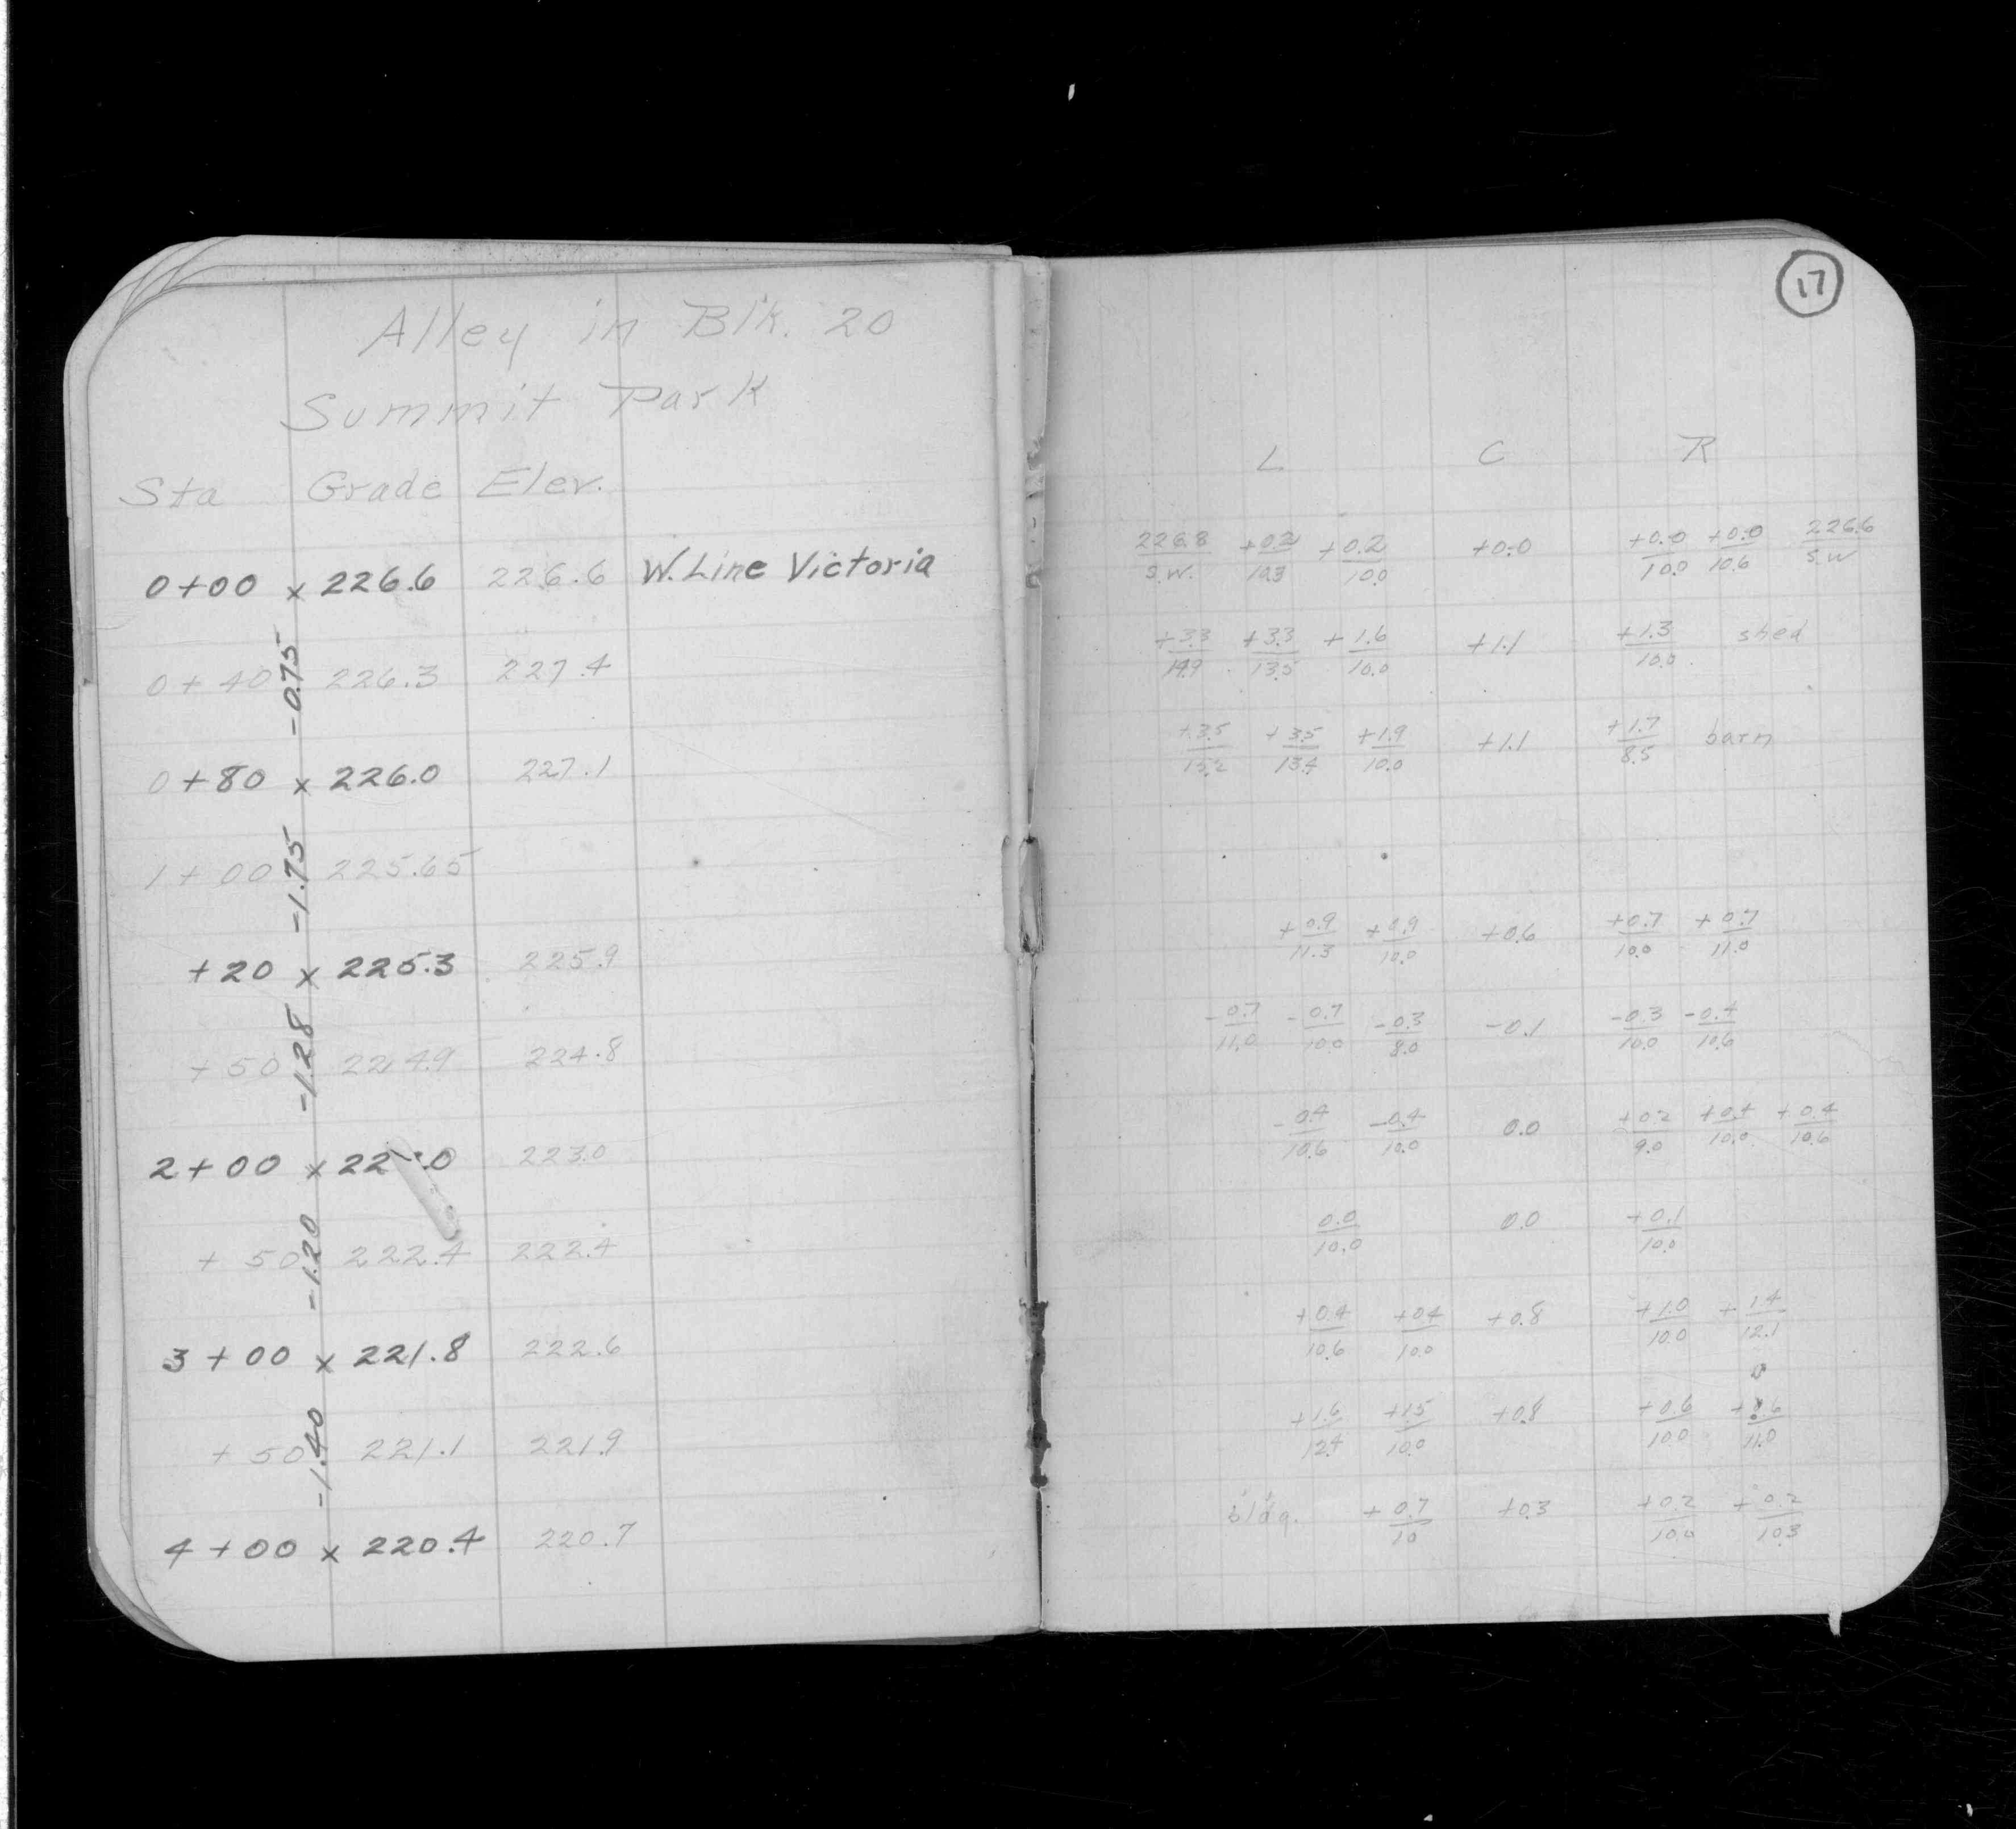 17
Alley in Blk. 20
Summit Park
Sta Grade Elev.
L C R
0+00 x 226.6 226.6 W. Line Victoria
226.8 +0.2 +0.2 +0.0 +0.0 +0.0 226.6
S.W. 10.3 10.0 10.0 10.6 S.W
-0.75
0+40 226.3 227.4
+3.3 +3.3 +1.6 +1.1 +1.3 shed
14.9 13.5 10.0 10.0
0+80 x 226.0 227.1
+3.5 +3.5 +1.9 +1.1 +1.7 barn
15.2 13.4 10.0 8.5
-1.75
1+00 225.65
+20 x 225.3 225.9
+0.9 +0.9 +0.6 +0.7 +0.7
11.3 10.0 10.0 11.0
-1.28
+50 224.9 224.8
-0.7 -0.7 -0.3 -0.1 -0.3 -0.4
11.0 10.0 8.0 10.0 10.6
2+00 x 223.0
-0.4 -0.4 0.0 +0.2 +0.4 +0.4
10.6 10.0 9.0 10.0 10.6
-1.20
+50 222.4 222.4
0.0 0.0 +0.1
10.0 10.0
3+00 x 221.8 222.6
+0.4 +0.4 +0.8 +1.0 +1.4
10.6 10.0 10.0 12.1
-1.40
+50 221.1 221.9
+1.6 +1.5 +0.8 +0.6
12.4 10.0 10.0 11.0
4+00 x 220.4 220.7
bldg. +0.7 +0.3 +0.2 +0.2
10 10.0 10.3